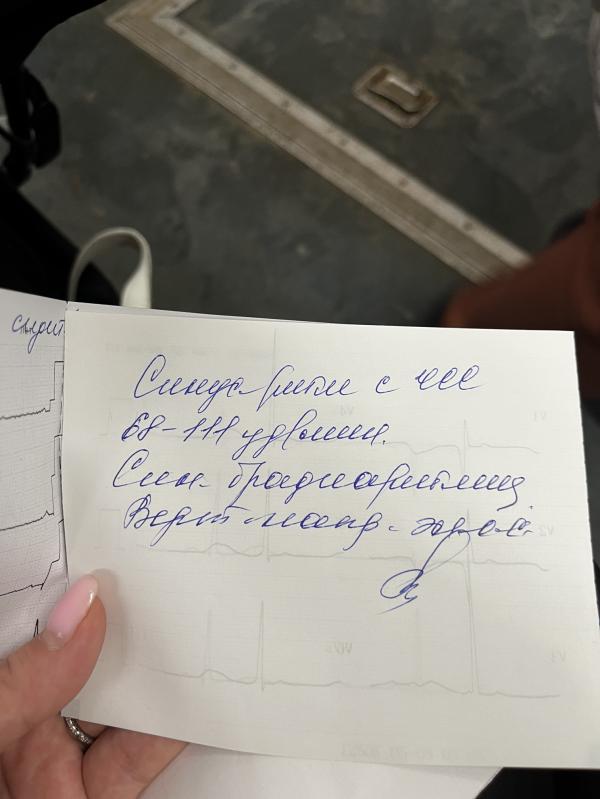 сидит
Синус. ритм с ЧСС
68-111 уд в мин.
Син. брадиаритмия
Верт. напр. эл. оси
V4
V1
V2
V6
V3